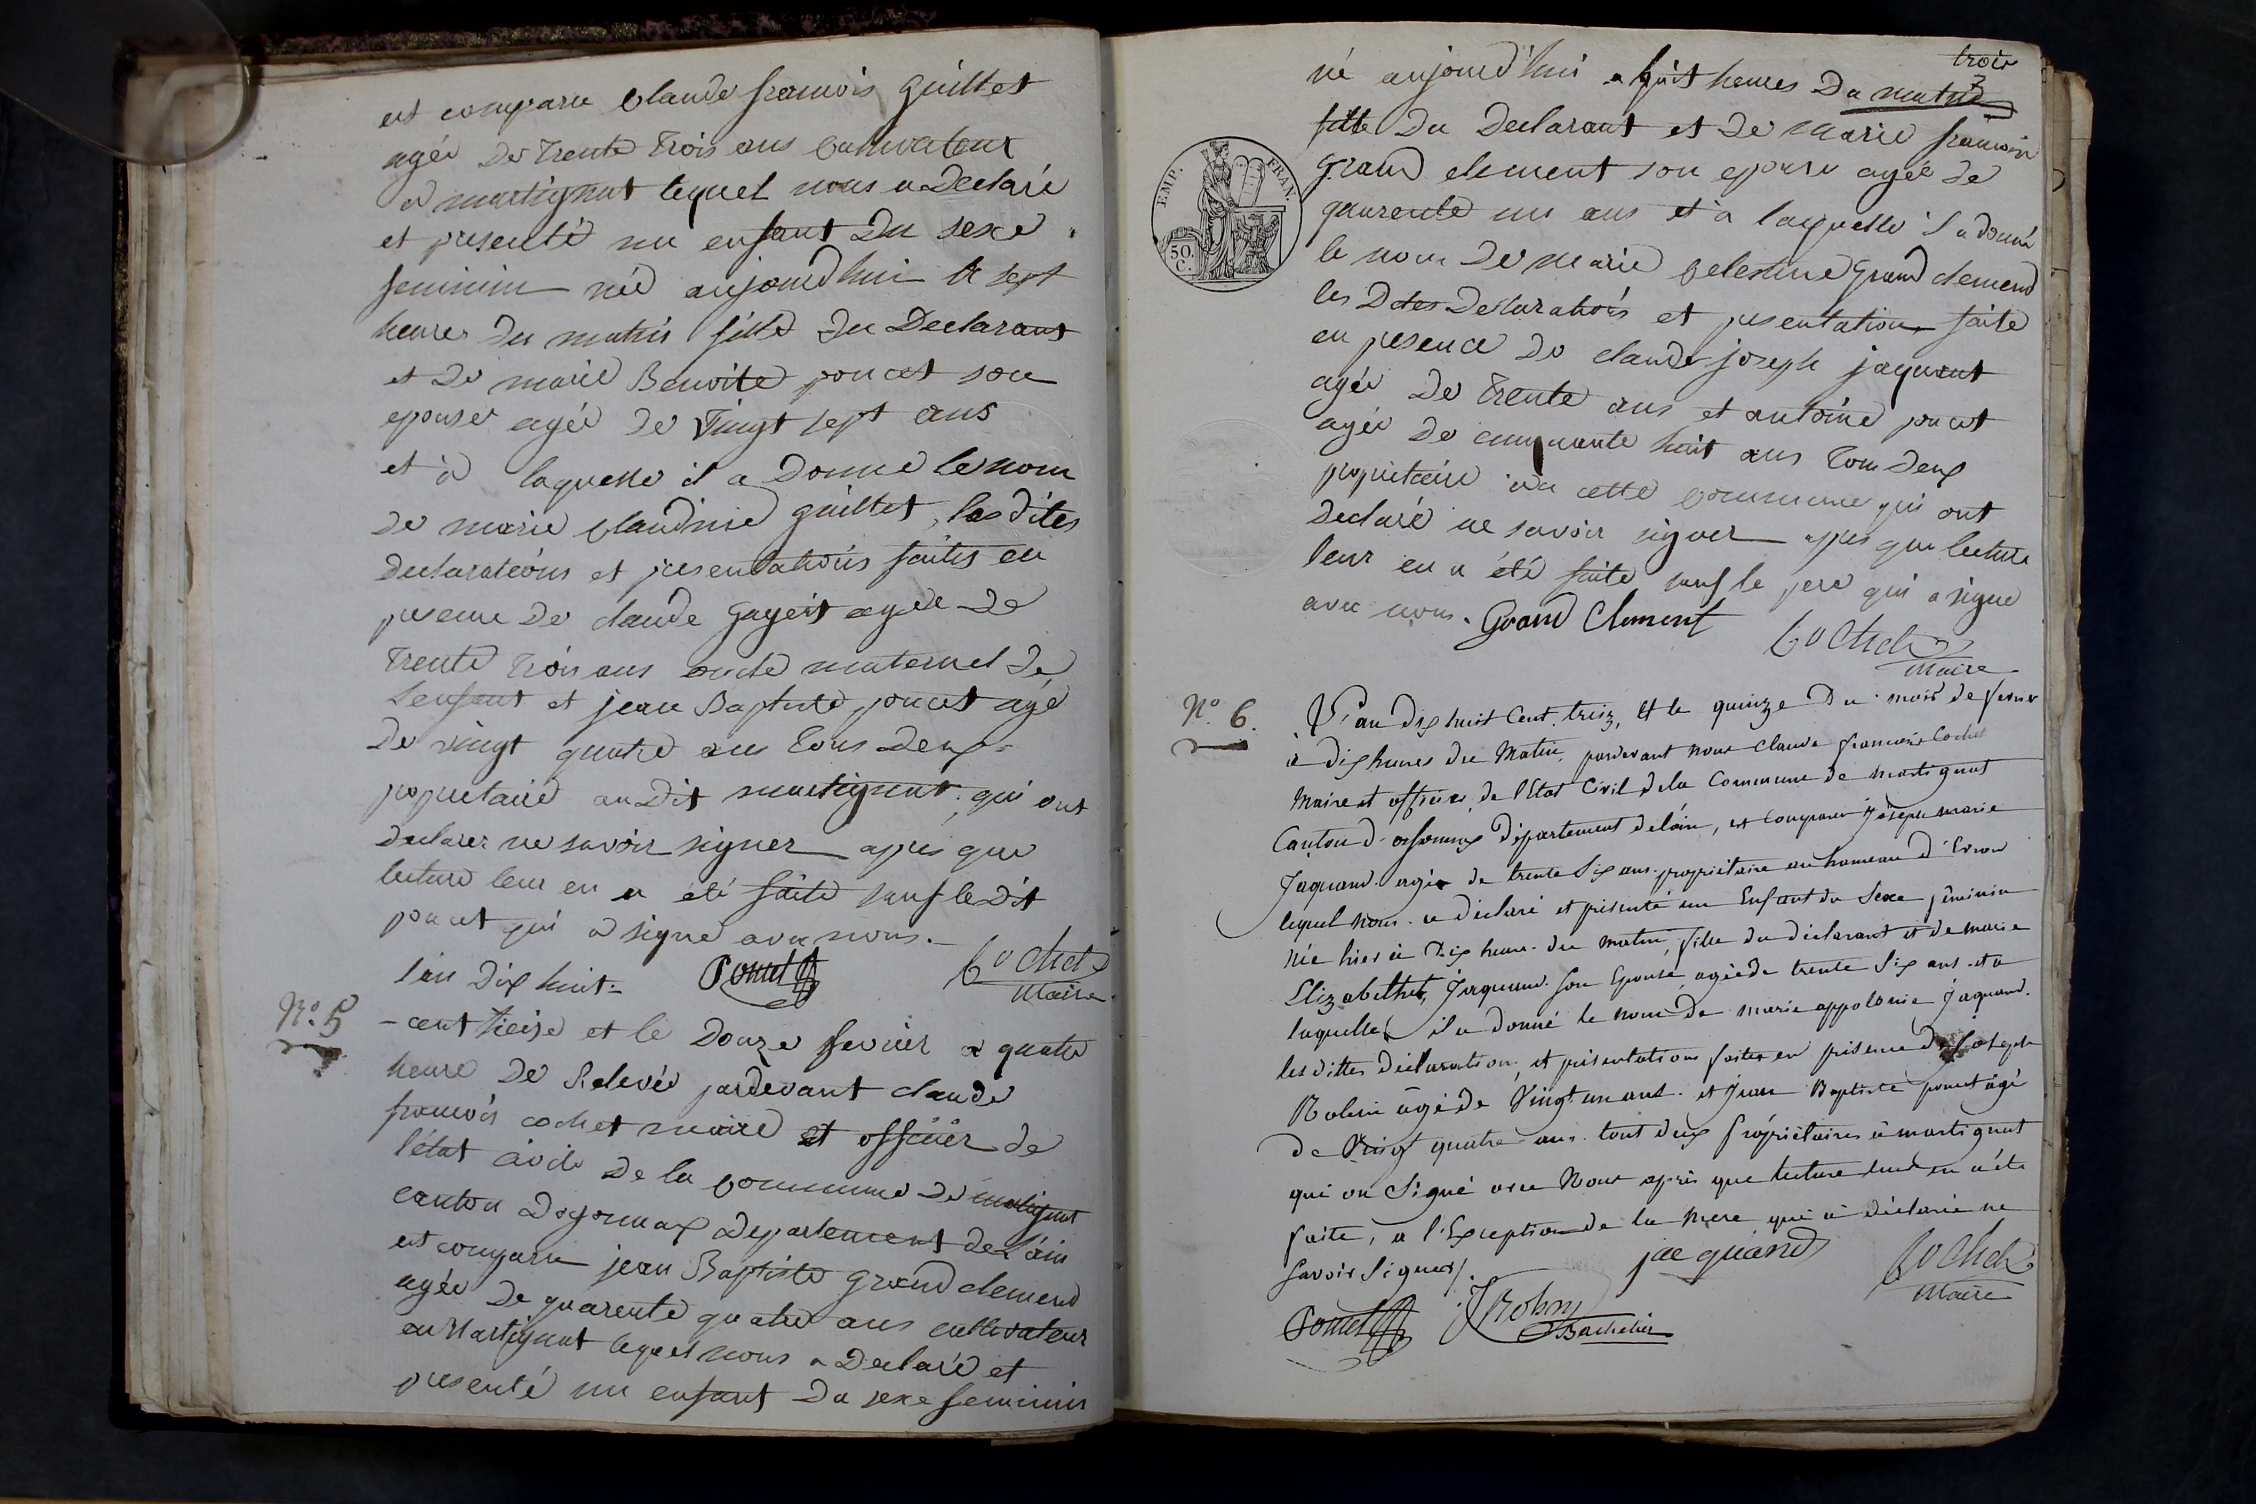 est comparu Claude francois Guillet
agée De trente trois ans Cultivateur
a martignat lequel nous a Declaré
et presenté un enfant Du sexe
feminin née aujourdhui a sept
heures du matin fille Du Declarant
et De marie Benoite poncet son
epouse agée de Vingt sept ans
et à laquelle il a Donné le nom
de marie Claudine Guillet, les dites
Declarations et presentations faites en
presence De claude Gagest agée De
trente trois ans oncle maternel De
l'enfant et jean Baptiste poncet agé
De vingt quatre ans tous Deux
propietaire au Dit martignat, qui ont
declarer ne savoir signer apres que
lecture leur en a été faite sauf le Dit
poncet qui a signé avec nous.
Poncet Cochet
Maire
N.º 5
l'an Dix huit=
-cent treize et le Douze fevrier a quatre
heure De Relevée pardevant claude
francois cochet maire et officier de
l'état civile De la Commune De martignat
canton Doyonnax Departement De L'ain
est comparu jean Baptiste Grand clemend
agée De quarente quatre ans cultivateur
au Martignat lequel nous a Declaré et
presenté un enfant Du sexe feminin
trois
3
né aujourd'hui a huit heures Du matin
fille Du Declarant et De marie francoise
Grand clement son epouse agée de
quarente un ans et a laquelle il a donné
le nom De marie Celestine Grand clemend
les Dites Declarations et presentation faite
en presence De claude joseph jaquant
agée De trente ans et antoine poncet
agée De cinquante huit ans tous Deux
propietaire de cette Commune qui ont
Declaré ne savoir signer apres que lecture
leur en a été faite sauf le pere qui a signé
avec nous. Grand Clement
Cochet
Maire
EMP. FRAN.
50. C.
N.º 6.
L'an dix huit Cent treiz, Et le quinze Du mois de fevrier
à dix heures du Matin, pardevant nous Claude francois Cochet
Maire et officier de l'Etat Civil de la Commune de martignat
Canton d'oyonnax département de l'ain, est Comparu Joseph marie
Jaquand agée de trente Six ans propriétaire au hameau d'Evron
lequel nous a déclaré et présenté un Enfant du Sexe féminin
née hier à Dix heure du matin, fille du déclarant et de marie
Elizabethet Jaquand Son Epouse agée de trente Six ans et a
laquelle il a donné le nom de marie appolonie Jaquand.
les dittes déclaration, et présentations faites en présence de Joseph
Robin âgé de Vingt un ans et Jean Baptiste poncet âgé
de Vingt quatre ans tout deux propriétaires à martignat
qui on Signé avec Nous après que lecture leur en a été
faite, a l'Exception de la Mere qui à déclarée ne
Savoir Signer.
jacquand Cochet
Maire
Poncet JRobin
Bachelier